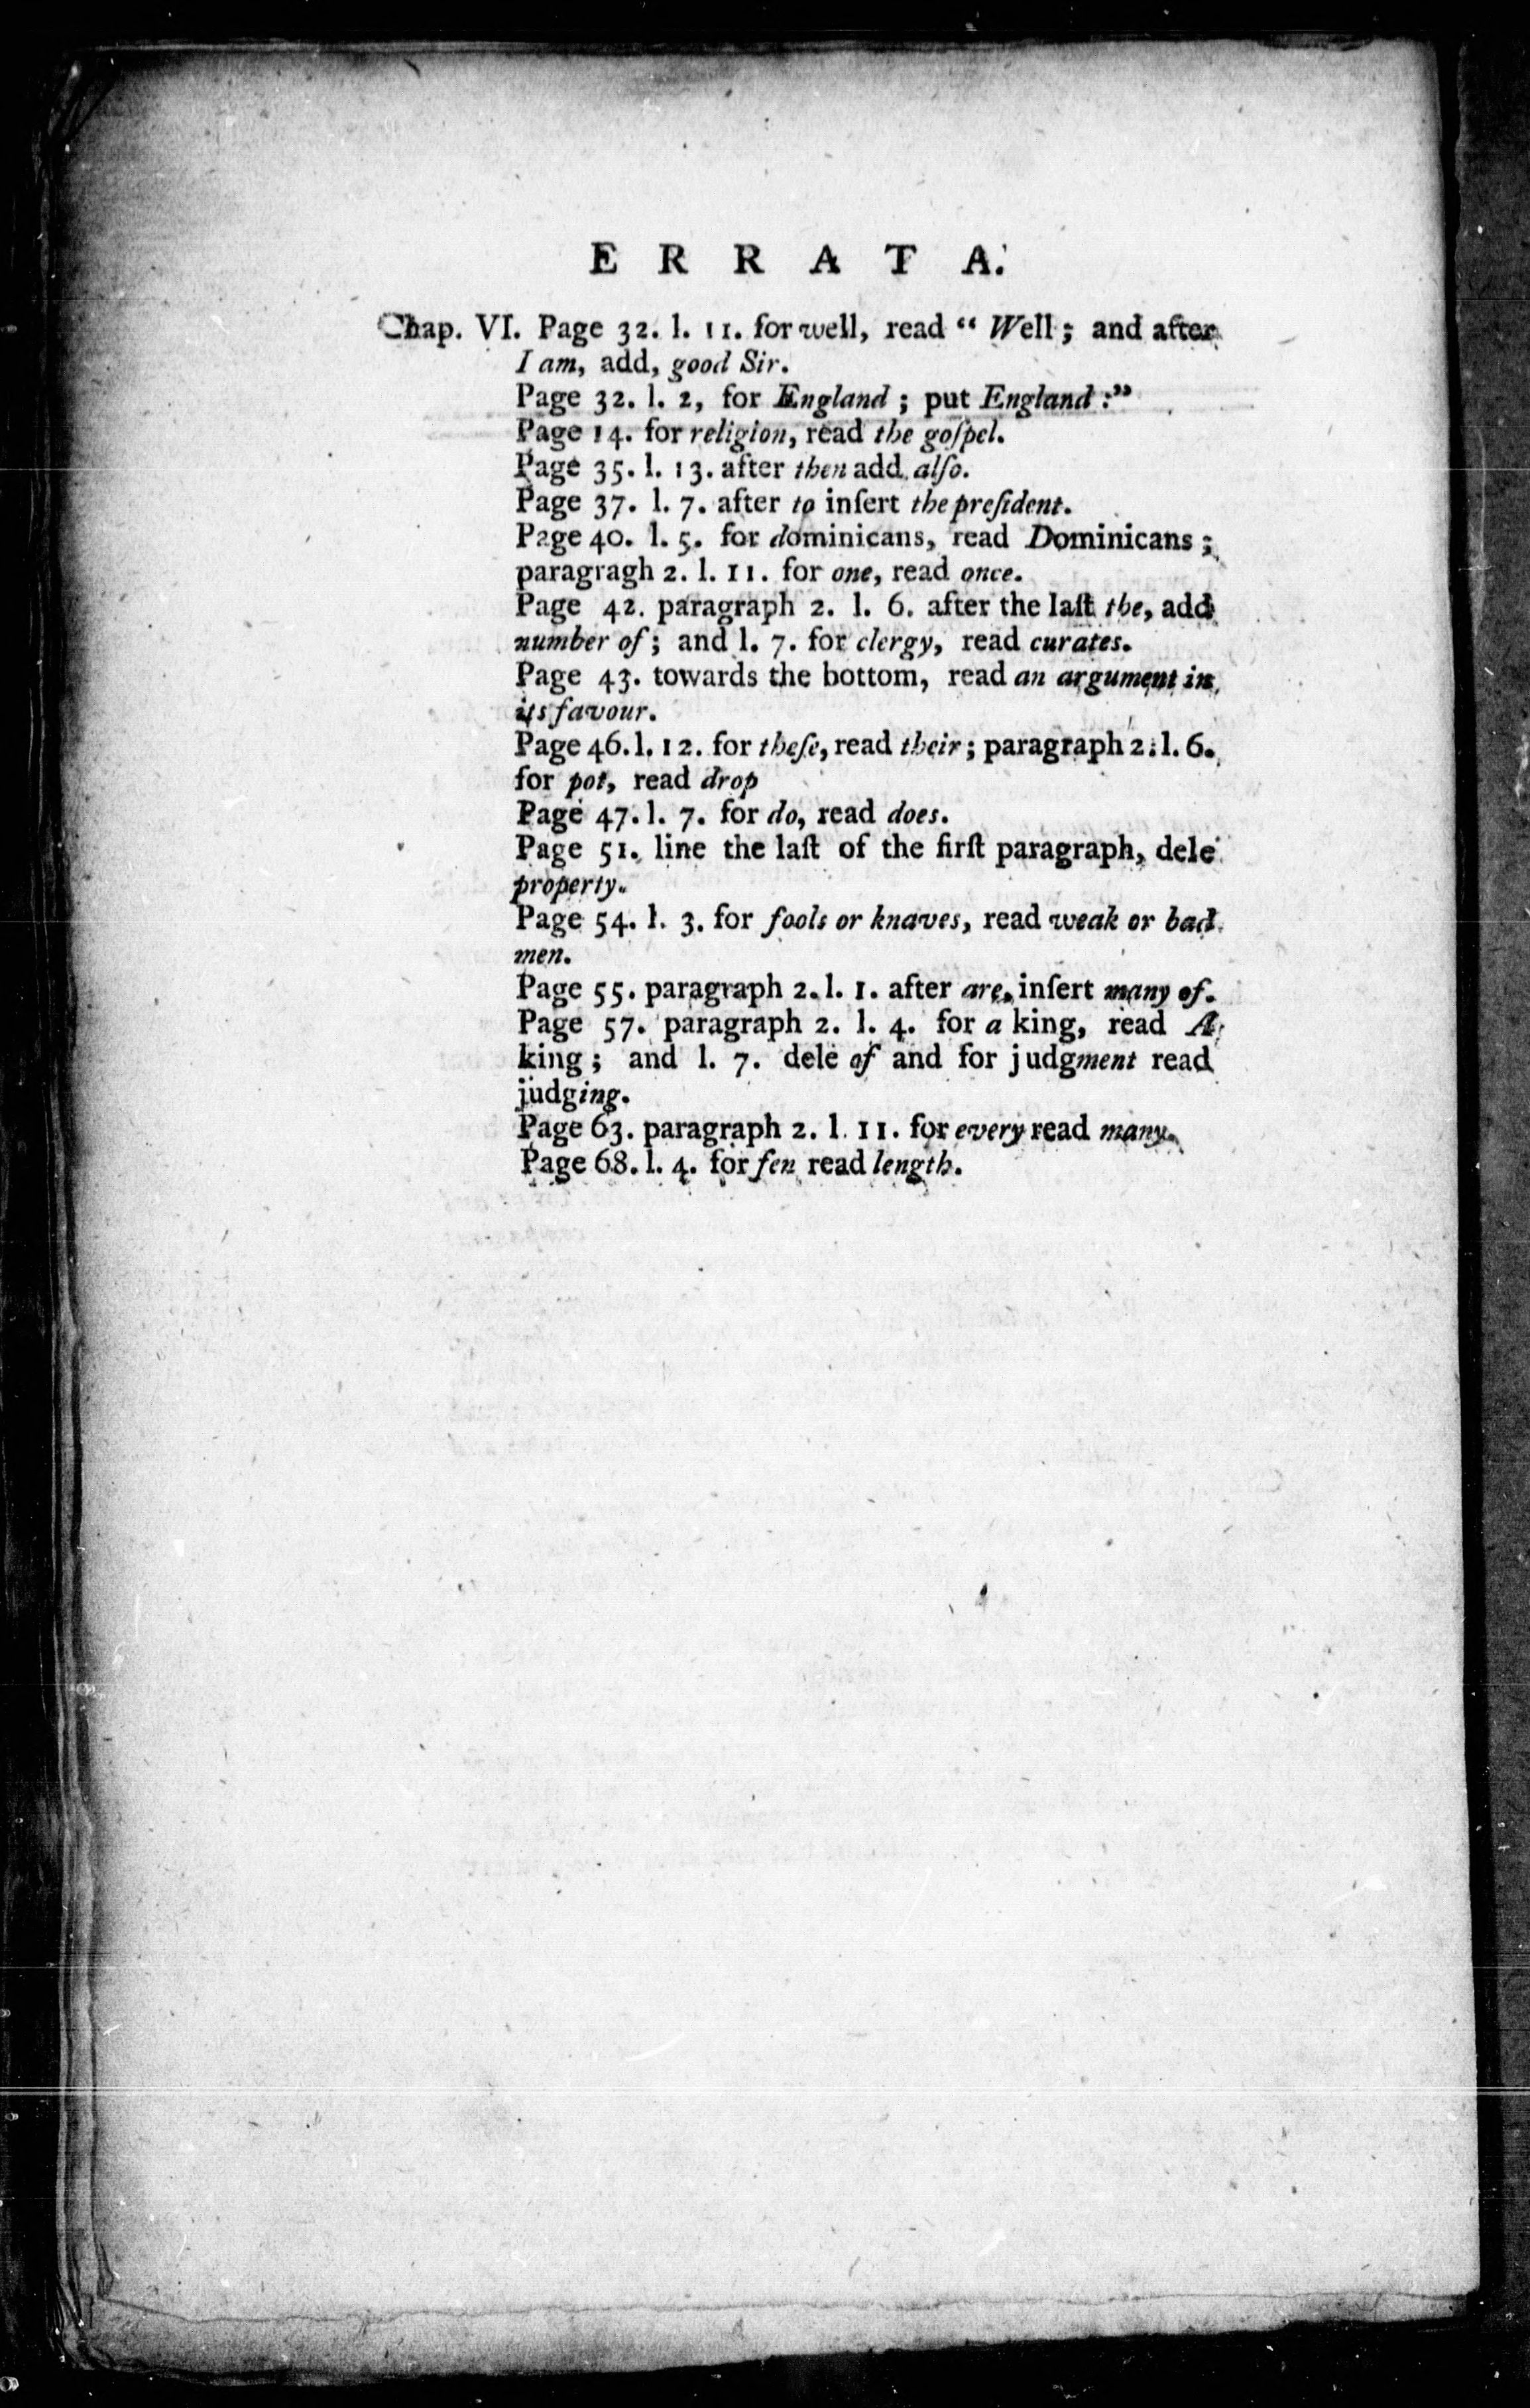 ERRATA.
Chap. VI. Page 32. l. 11. for well, read “ Well ; and after
I am, add, good Sir.
Page 32. l. 2, for England ; put England :”
Page 14. for religion, read the goſpel.
Page 35. l. 13. after then add alſo.
Page 37. l. 7. after to inſert the preſident.
Page 40. l. 5. for dominicans, read Dominicans ;
paragragh 2. l. 11. for one, read once.
Page 42. paragraph 2. l. 6. after the laſt the, add
number of ; and l. 7. for clergy, read curates.
Page 43. towards the bottom, read an argument in
its favour.
Page 46. l. 12. for theſe, read their ; paragraph 2. l. 6.
for pot, read drop
Page 47. l. 7. for do, read does.
Page 51. line the laſt of the firſt paragraph, dele
property.
Page 54. l. 3. for fools or knaves, read weak or bad
men.
Page 55. paragraph 2. l. 1. after are, inſert many of.
Page 57. paragraph 2. l. 4. for a king, read A
king ; and l. 7. dele of and for judgment read
judging.
Page 63. paragraph 2. l. 11. for every read many.
Page 68. l. 4. for fen read length.